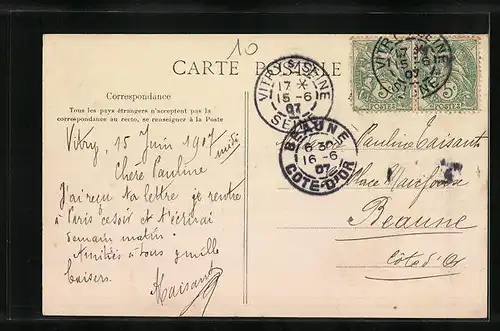 10
CARTE POSTALE
Correspondance
Tous les pays étrangers n'acceptent pas la
correspondance au recto, se renseigner à la Poste
Vitry, 15 Juin 1907
midi
Chère Pauline
J'ai reçu ta lettre je rentre
à Paris ce soir et t'écrirai
demain matin.
Amitiés à tous & mille
baisers.
VITRY S/ SEINE
17
15-6
07
SEINE
BEAUNE
6 30
16-6
07
COTE-D'OR
VITRY S/ SEINE
17
15-6
07
SEINE
POSTES
POSTES
5c
Pauline
Place
Beaune
Côte d'Or